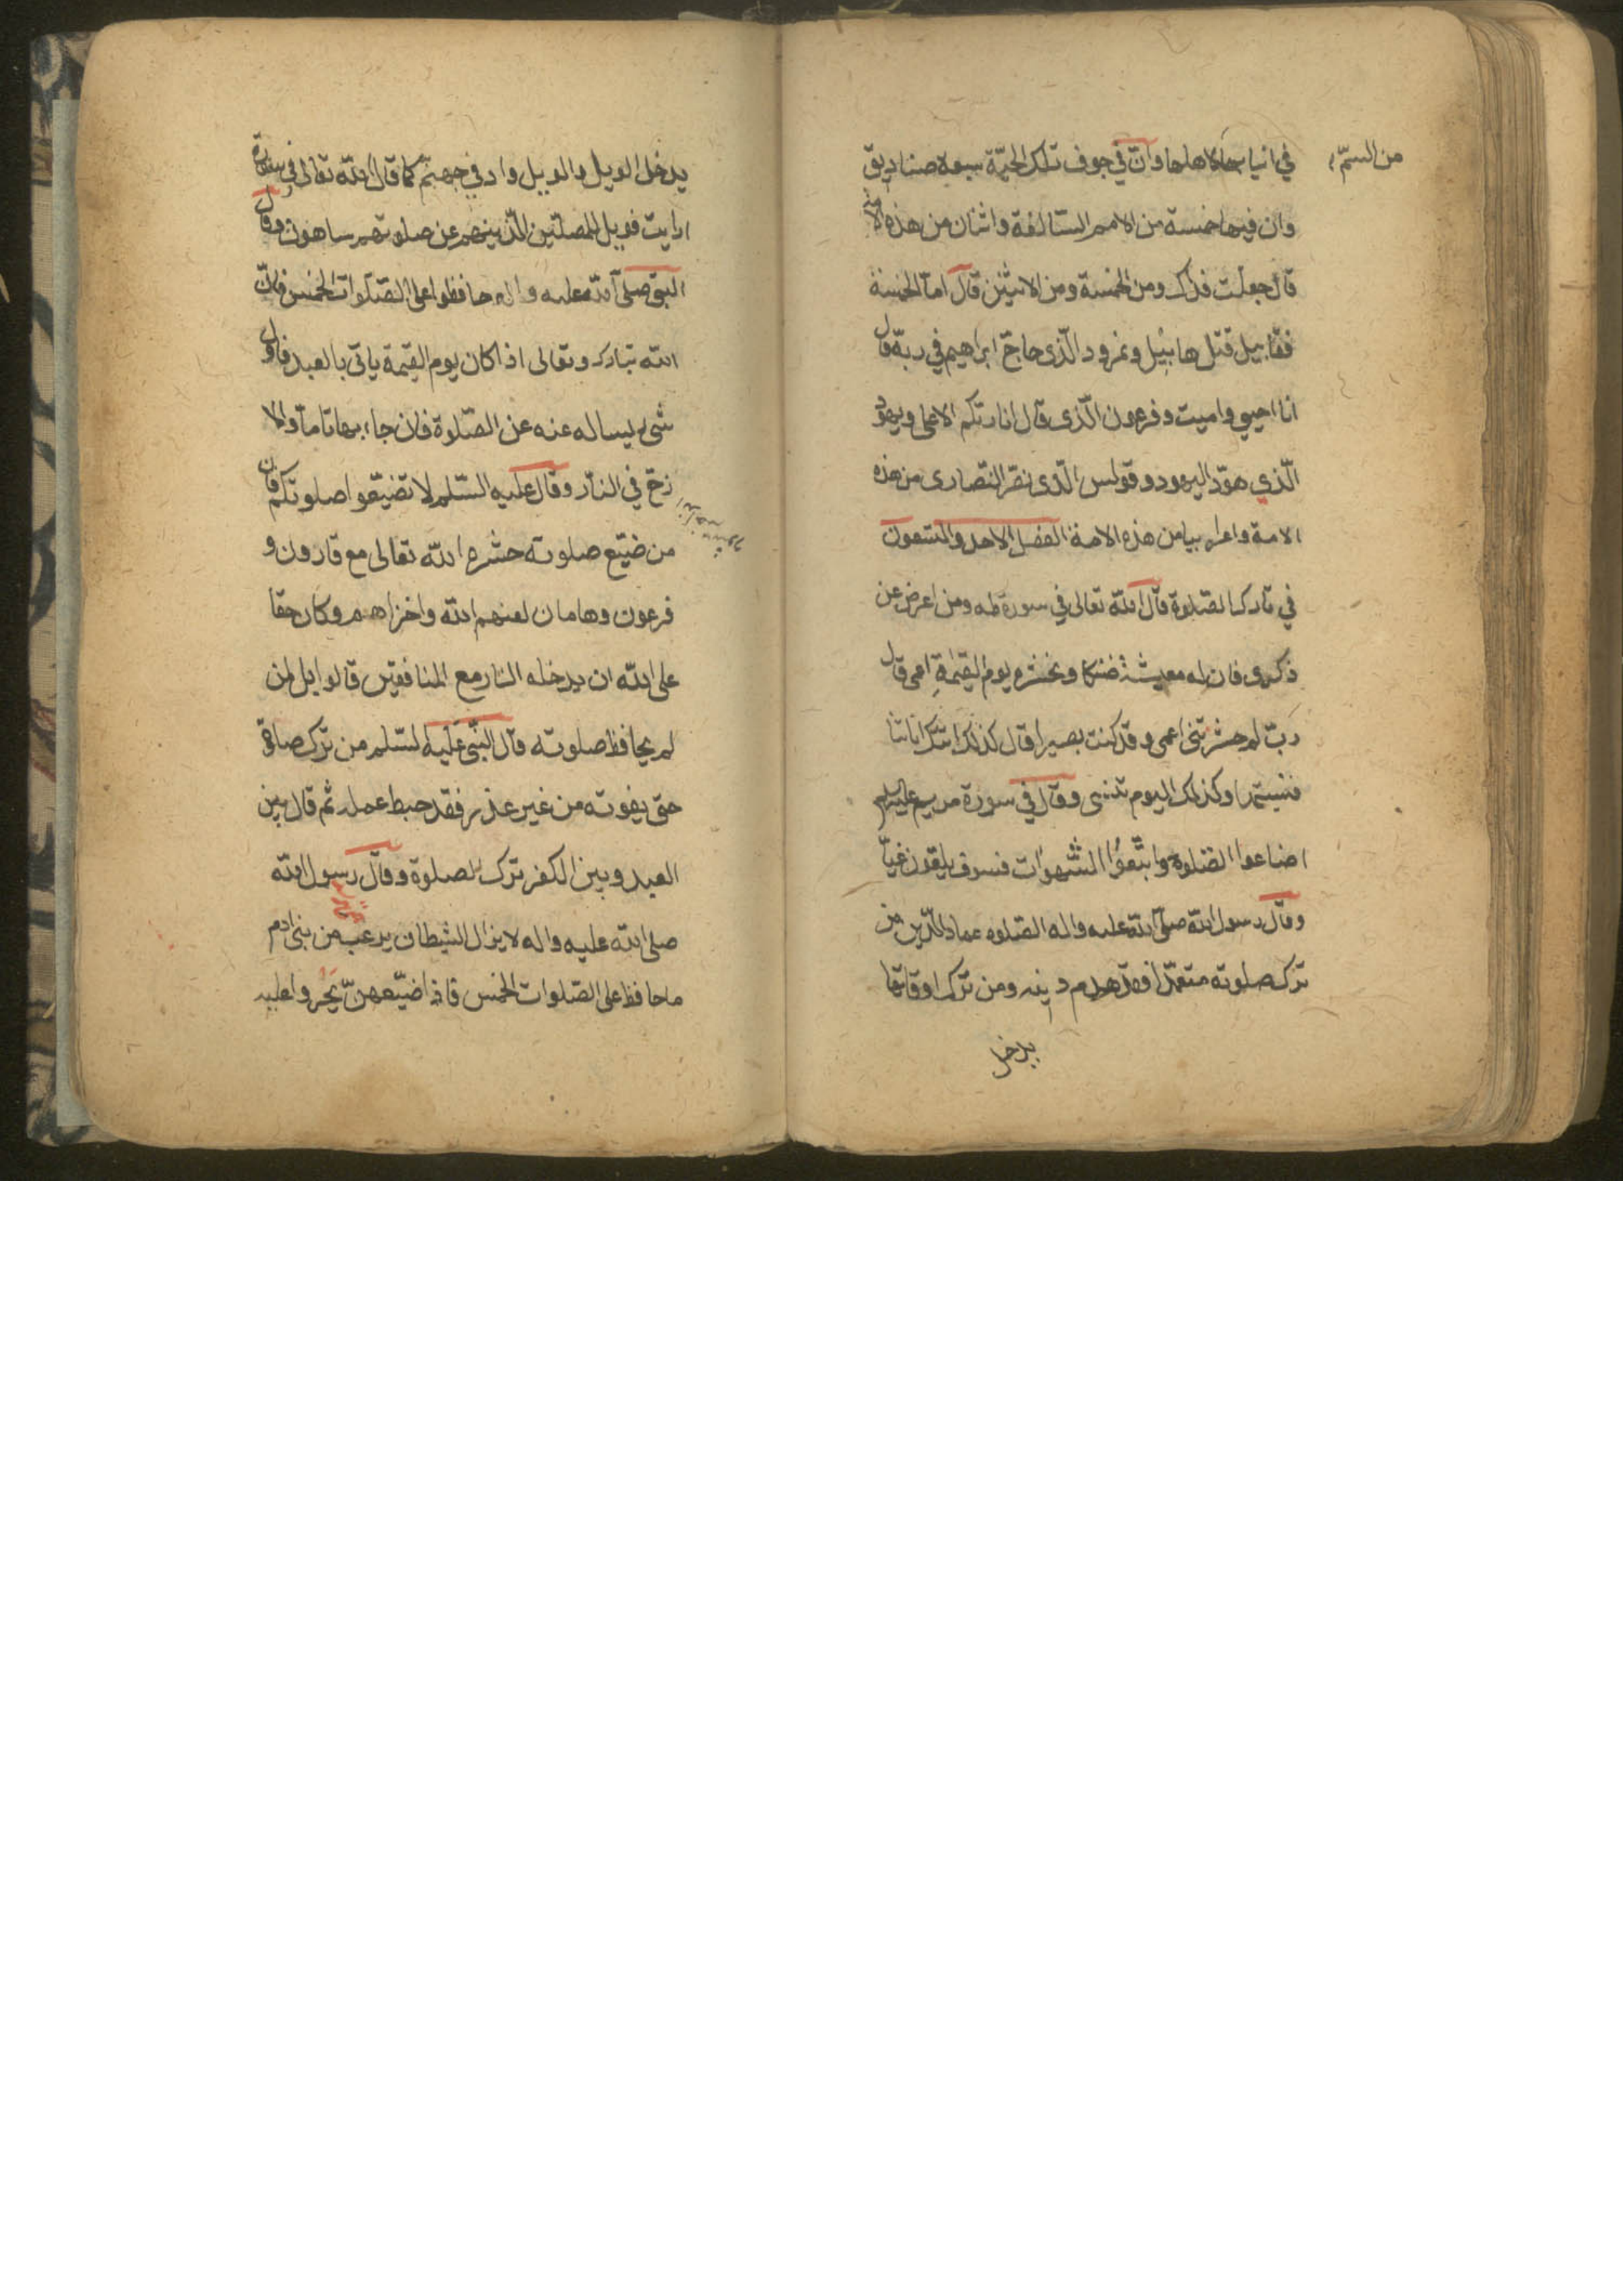 في انيابها لاهلها وانّ في جوف تلك الحيّة سبعة صناديق
من السمّ
وان فيها خمسة من الامم السالفة واثنان من هذه الامة
قال جعلت فداك ومن الخمسة ومن الاثنين قال امّا الخمسة
فقابيل قتل هابيل ونمرود الّذى حاجّ ابراهيم في ربه قال
انا احيي واميت وفرعون الّذى قال انا ربّكم الاعلى ويهود
الّذي هوّد اليهود وقولس الّذى نصّر النصارى من هذه
الامة واعرابيا من هذه الامة الفصل الاحد والتسعون
في تارك الصّلوة قال الله تعالى في سورة طه ومن اعرض عن
ذكرى فان له معيشة ضنكا ونحشره يوم القيمة اعمى قال
ربّ لم حشرتنى اعمى وقد كنت بصيرا قال كذلك اتتك اياتنا
فنسيتها وكذلك اليوم تنسى وقال في سورة مريم عليها السلم
اضاعوا الصّلوة واتّبعوا الشّهوات فسوف يلقون غيّا
وقال رسول الله صلّى الله عليه واله الصّلوه عماد الدّين من
ترك صلوته متعمّدا فقد هدم دينه ومن ترك اوقاتها
يدخل
يدخل الويل والويل واد في جهنّم كما قال الله تعالى في سورة
ارايت فويل للمصلّين الّذينهم عن صلوتهم ساهون وقال
النبي صلّى الله عليه واله حافظوا على الصّلوات الخمس فانّ
الله تبارك وتعالى اذا كان يوم القيمة ياتى بالعبد فاول
شىء يساله عنه عن الصّلوة فان جاء بها تامّا والا
زخّ في النار وقال عليه السّلم لا تضيّعوا صلوتكم فان
من ضيّع صلوته حشره الله تعالى مع قارون و
فرعون وهامان لعنهم الله واخزاهم وكان حقا
على الله ان يدخله النار مع المنافقين فالويل لمن
لم يحافظ صلوته قال النّبى عليه السّلم من ترك صلوة
حتى يفوته من غير عذر فقد حبط عمله ثم قال بين
العبد وبين الكفر ترك الصلوة وقال رسول الله
صلى الله عليه واله لا يزال الشيطان يرعب من بنى ادم
ما حافظ على الصّلوات الخمس فاذا ضيّعهنّ تجرّوا عليه